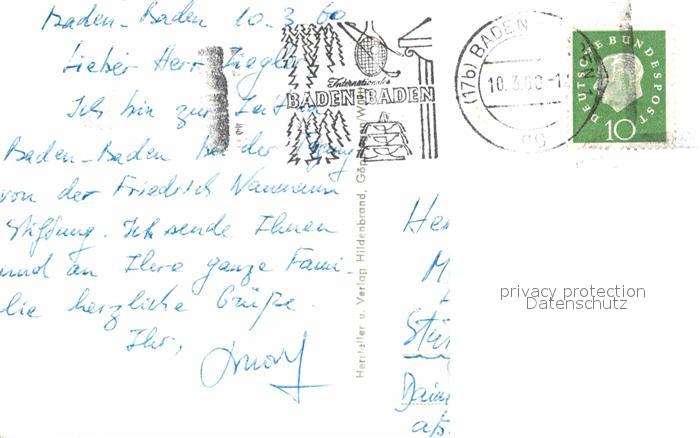 Baden-Baden 10.3.60
Lieber Herr Ziegler
Ich bin zur Zeit in
Baden-Baden bei der Tagung
von der Friedrich Naumann
Stiftung. Ich sende Ihnen
und an Ihre ganze Fami-
lie herzliche Grüße.
Ihr,
Internationales
BADEN-BADEN
(17b) BADEN
10.3.60-1
DEUTSCHE BUNDESPOST
10
Hersteller u. Verlag Hildenbrand, Göp
privacy protection
Datenschutz